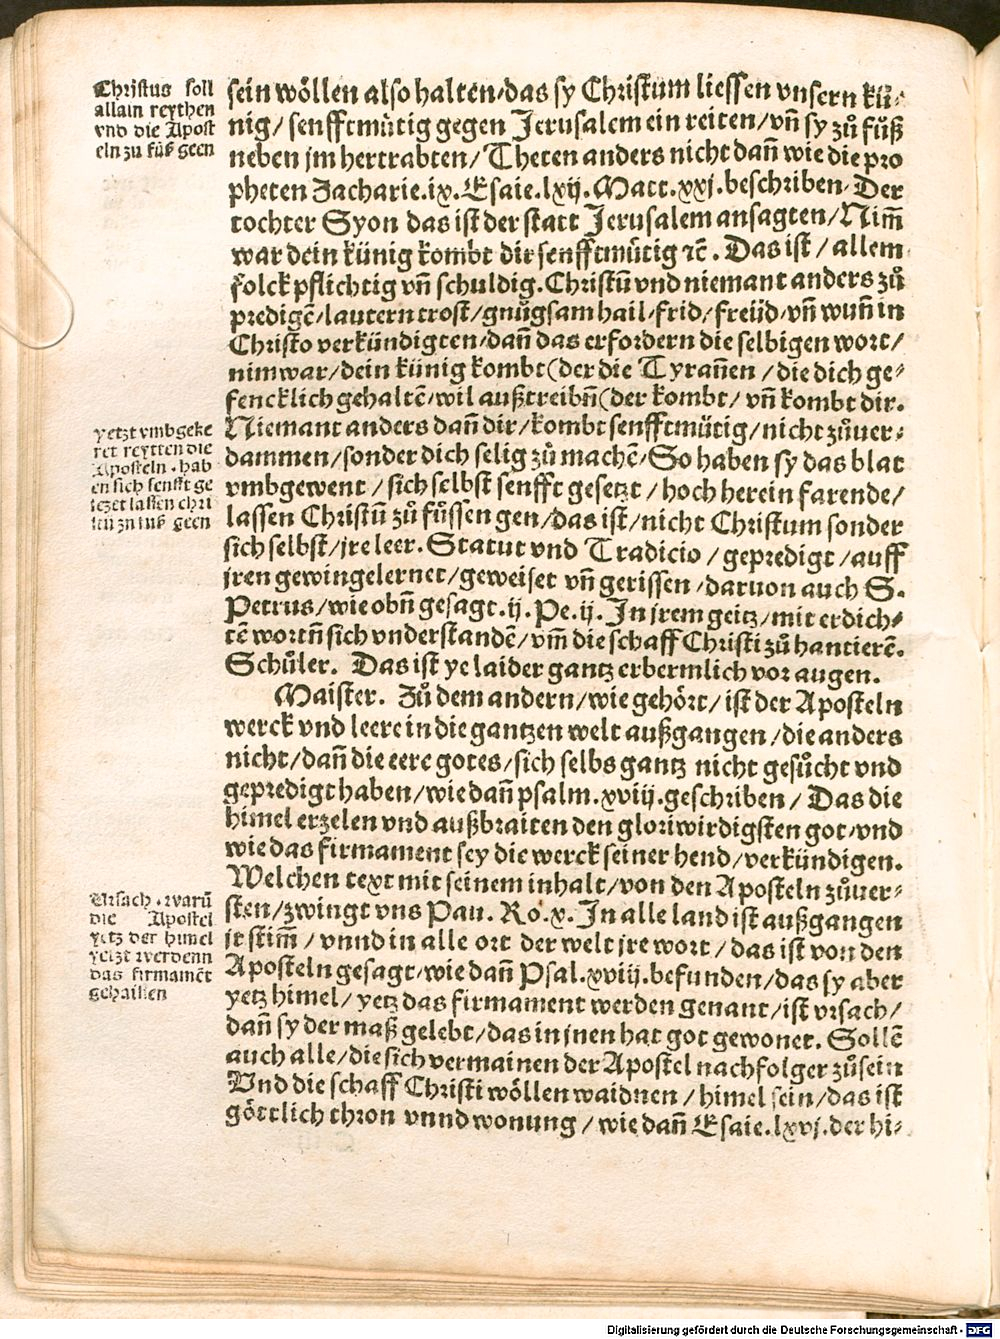 Christus soll
allain reythen
vnd die Apost
eln zu füß geen
sein wöllen also halten/das sy Christum liessen vnsern kü⸗
nig/ senfftmütig gegen Jerusalem ein reiten/vn̄ sy zů fůß
neben jm hertrabten/ Theten anders nicht dan̄ wie die pro
pheten Zacharie.ix. Esaie.lxij. Matt.xxj.beschriben. Der
tochter Syon das ist der statt Jerusalem ansagten/Nim̄
war dein künig kombt dir senfftmütig ꝛc̄. Das ist/ allem
folck pflichtig vn̄ schuldig. Christū vnd niemant anders zů
predigē/lautern trost/gnůgsam hail/frid/freüd/vn̄ wun̄ in
Christo verkündigten/dan̄ das erfordern die selbigen wort/
nimwar/dein künig kombt(der die Tyran̄en/die dich ge⸗
fencklich gehaltē/wil außtreibn̄(der kombt/ vn̄ kombt dir.
yetzt vmbgeke
ret reytten die
Aposteln.hab
en sich senfft ge
setzet lassen chri
stū zu fuß geen
Niemant anders dan̄ dir/kombt senfftmütig/nicht zůuer⸗
dammen/sonder dich selig zů machē/So haben sy das blat
vmbgewent/sich selbst senfft gesetzt/hoch herein farende/
lassen Christū zů füssen gen/das ist/nicht Christum sonder
sich selbst/jre leer. Statut vnd Tradicio/gepredigt/auff
jren gewin gelernet/geweiset vn̄ gerissen/daruon auch S.
Petrus/wie obn̄ gesagt.ij.Pe.ij. In jrem geitz/mit erdich⸗
tē wortn̄ sich vnderstandē/vm̄ die schaff Christi zů hantierē.
Schůler. Das ist ye laider gantz erbermlich vor augen.
Maister. Zů dem andern/wie gehört/ist der Aposteln
werck vnd leere in die gantzen welt außgangen/die anders
nicht/dan̄ die eere gotes/sich selbs gantz nicht gesůcht vnd
gepredigt haben/wie dan̄ psalm.xviij.geschriben/ Das die
himel erzelen vnd außbraiten den gloriwirdigsten got/vnd
wie das firmament sey die werck seiner hend/verkündigen.
Vrsach.warū
die Apostel
yetz der himel
yetzt werdenn
das firmamēt
gehaissen
Welchen text mit seinem inhalt/von den Aposteln zůuer⸗
sten/zwingt vns Pau. Ro.x. In alle land ist außgangen
jr stim̄/vnnd in alle ort der welt jre wort/das ist von den
Aposteln gesagt/wie dan̄ Psal.xviij.befunden/das sy aber
yetz himel/yetz das firmament werden genant/ist vrsach/
dan̄ sy der maß gelebt/das in jnen hat got gewonet. Sollē
auch alle/die sich vermainen der Apostel nachfolger zůsein
Vnd die schaff Christi wöllen waidnen/himel sein/das ist
göttlich thron vnnd wonung/wie dan̄ Esaie.lxvj.der hi⸗
Digitalisierung gefördert durch die Deutsche Forschungsgemeinschaft - DFG